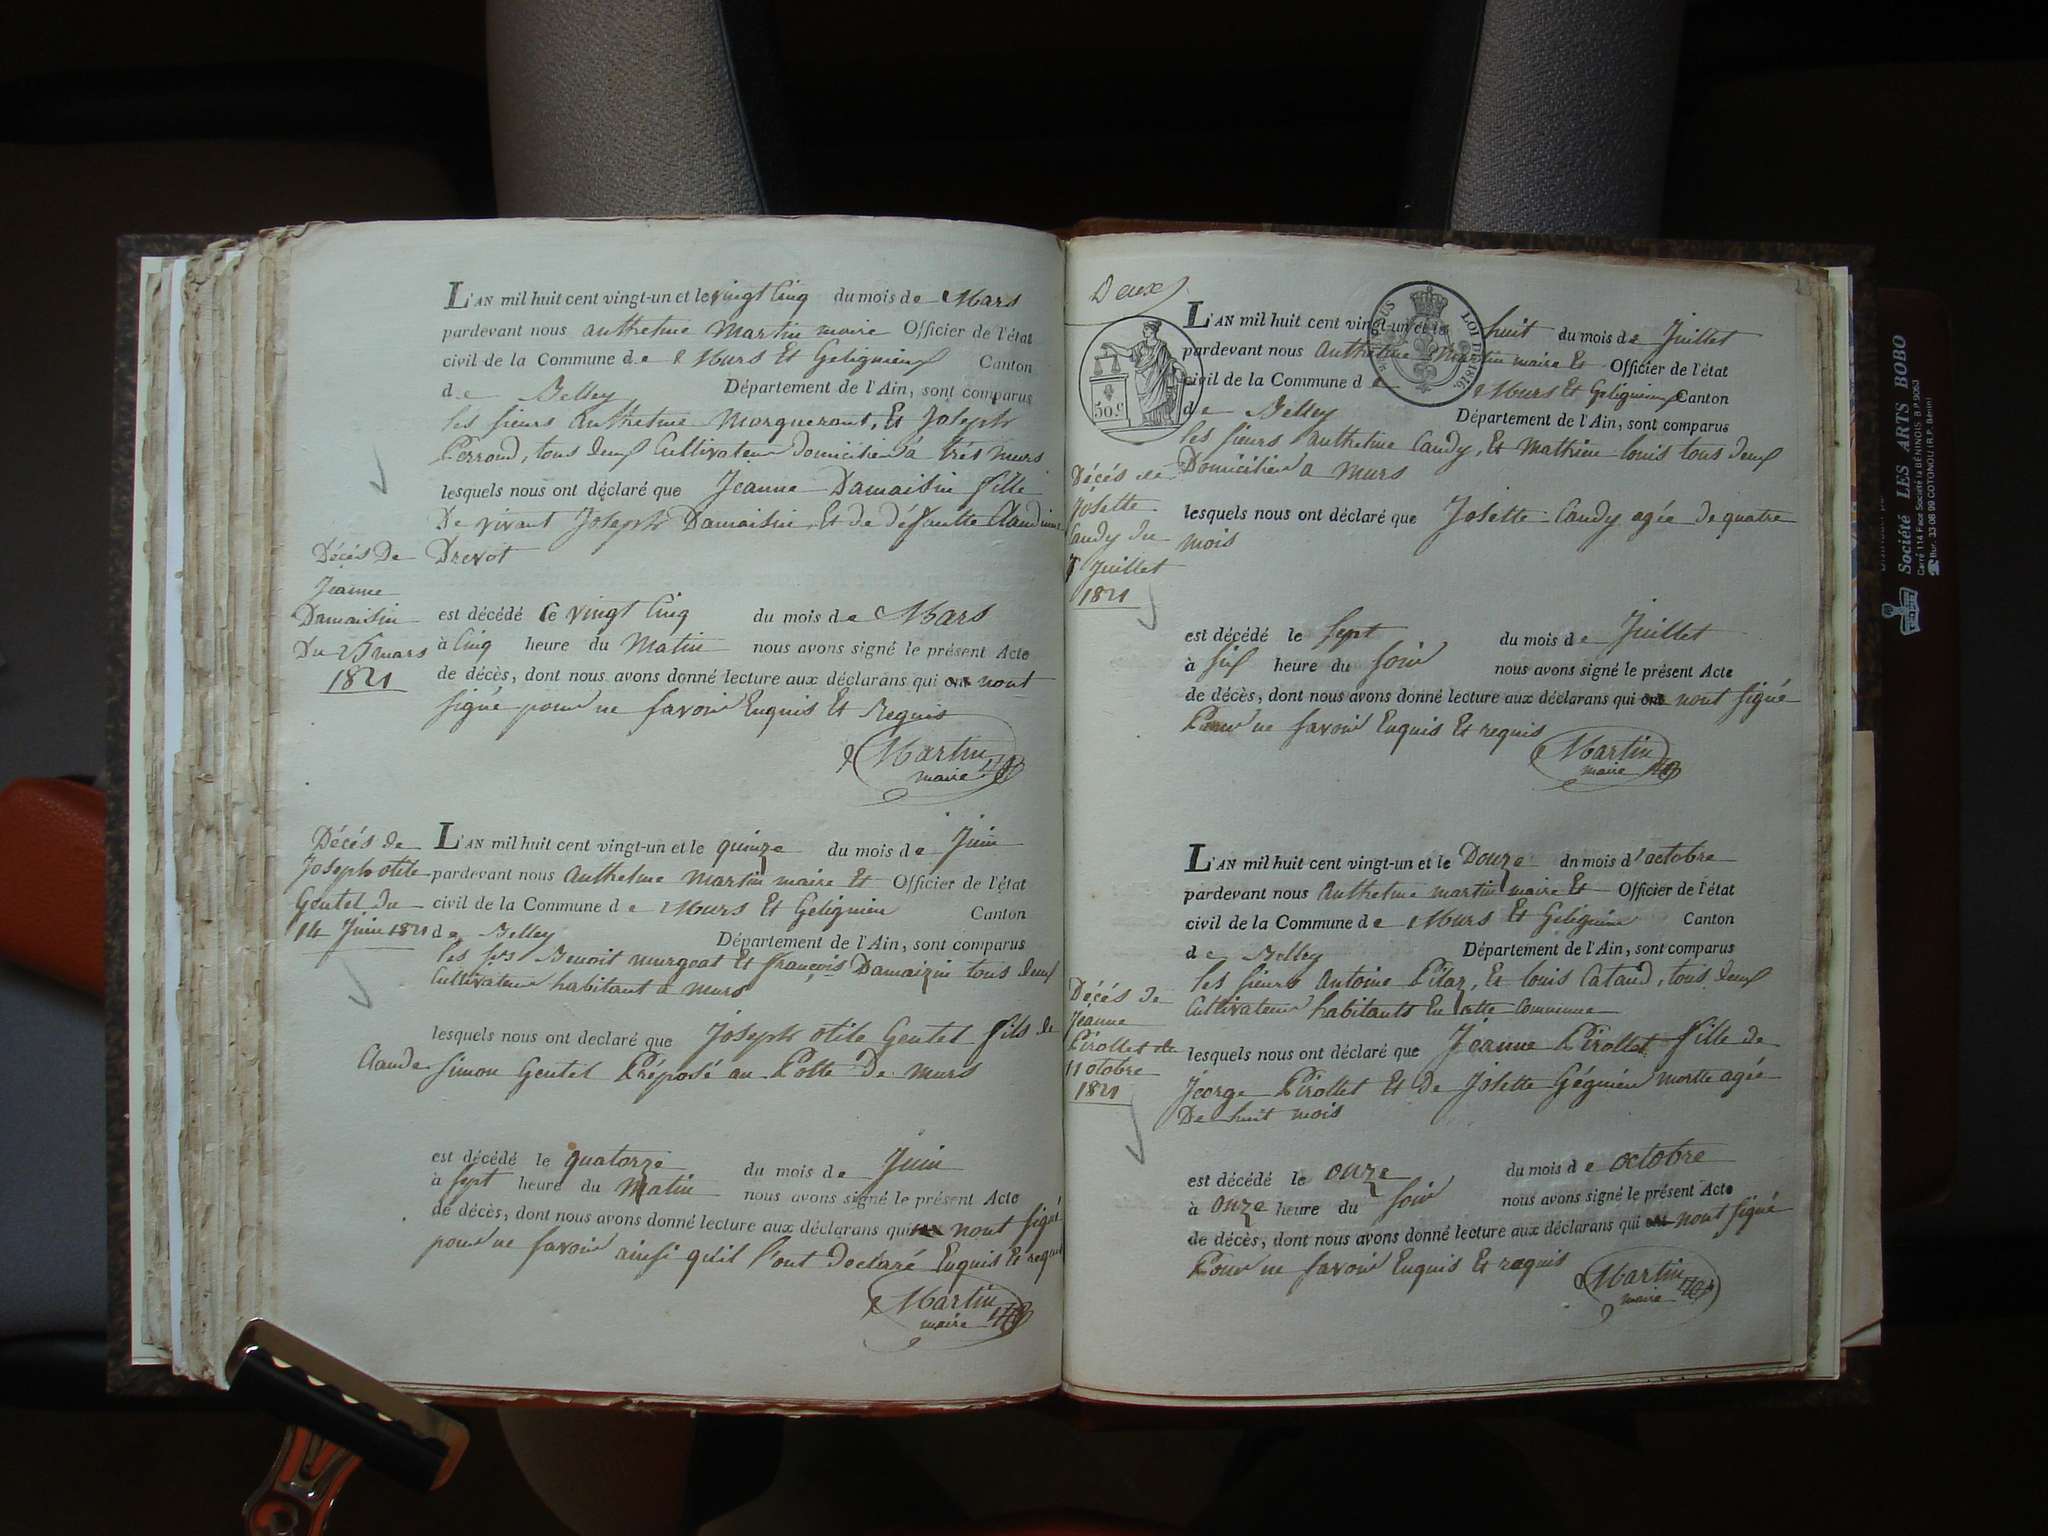 L'AN mil huit cent vingt-un et le vingt Cinq du mois de Mars
pardevant nous anthelme Martin maire Officier de l'état
civil de la Commune de Murs Et Gelignieux Canton
de Belley Département de l'Ain, sont comparus
les sieurs anthelme Et Joseph
Perroud, tous deux Cultivateur Domicilies à murs
lesquels nous ont déclaré que Jeanne Damaisin fille
De vivant Joseph Damaisin, Et de défunte Claudine
Drevot
Décés De
Jeanne
Damaisin
Du 25 mars
1821
est décédé le vingt Cinq du mois de Mars
à Cinq heure du Matin nous avons signé le présent Acte
de décès, dont nous avons donné lecture aux déclarans qui ont nont
signé pour ne savoir Enquis Et Requis
Martin
maire
Décés de
Joseph otile
Gentel du
14 Juin 1821
L'AN mil huit cent vingt-un et le quinze du mois de Juin
pardevant nous anthelme Martin maire Et Officier de l'état
civil de la Commune de Murs Et Gelignieu Canton
de Belley Département de l'Ain, sont comparus
les srs Benoit murgeat Et françois Damaizin tous deux
Cultivateur habitant a murs
lesquels nous ont declaré que Joseph otile Gentel fils de
Claude Simon Gentel Préposé au Poste De murs
est décédé le quatorze du mois de Juin
à sept heure du Matin nous avons signé le présent Acte
de décès, dont nous avons donné lecture aux déclarans qui nont signé
pour ne savoir ainsi qu'il l'ont Déclaré Enquis Et requis
Martin
maire
Deux
LOI DE 1816.
50.c
L'AN mil huit cent vingt-un et le huit du mois de Juillet
pardevant nous Anthelme Martin maire Et Officier de l'état
civil de la Commune de Murs Et Gelignieux Canton
de Belley Département de l'Ain, sont comparus
les sieurs anthelme Candy, Et Mathieu louis tous deux
Domicilier a Murs
Décés de
Josette
Candy du
7 Juillet
1821
lesquels nous ont déclaré que Josette Candy agée de quatre
mois
est décédé le sept du mois de Juillet
à six heure du soir nous avons signé le présent Acte
de décès, dont nous avons donné lecture aux déclarans qui ont nont signé
Pour ne savoir Enquis Et requis
Martin
maire
L'AN mil huit cent vingt-un et le Douze du mois d'octobre
pardevant nous anthelme martin maire Et Officier de l'état
civil de la Commune de Murs Et Gelignieu Canton
de Belley Département de l'Ain, sont comparus
les sieurs Antoine Pitaz, Et louis Cataud, tous deux
Cultivateur habitants En cette commune
Décés de
Jeanne
Pirollet de
11 otobre
1821
lesquels nous ont déclaré que Jeanne Pirollet fille de
Jeorge Pirollet Et de Josette Géquien mortte agée
De huit mois
est décédé le onze du mois de octobre
à onze heure du soir nous avons signé le présent Acte
de décès, dont nous avons donné lecture aux déclarans qui ont nont signé
Pour ne savoir Enquis Et requis
Martin
maire
Société LES ARTS BOBO
Carré 114 Face Société la BÉNINOIS B.P.9053
Bur. 33 08 99 COTONOU (R.P. Bénin)